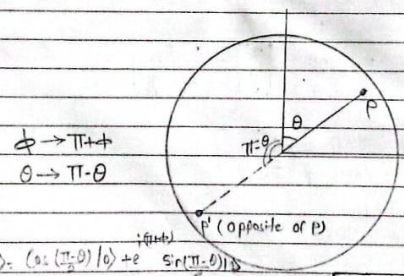 θ
P
π-θ
ϕ → π+ϕ
θ → π-θ
P' (opposite of P)
>= Cos (π-θ)/2 |0> + e^i(π+ϕ) Sin(π-θ)/2 |1>